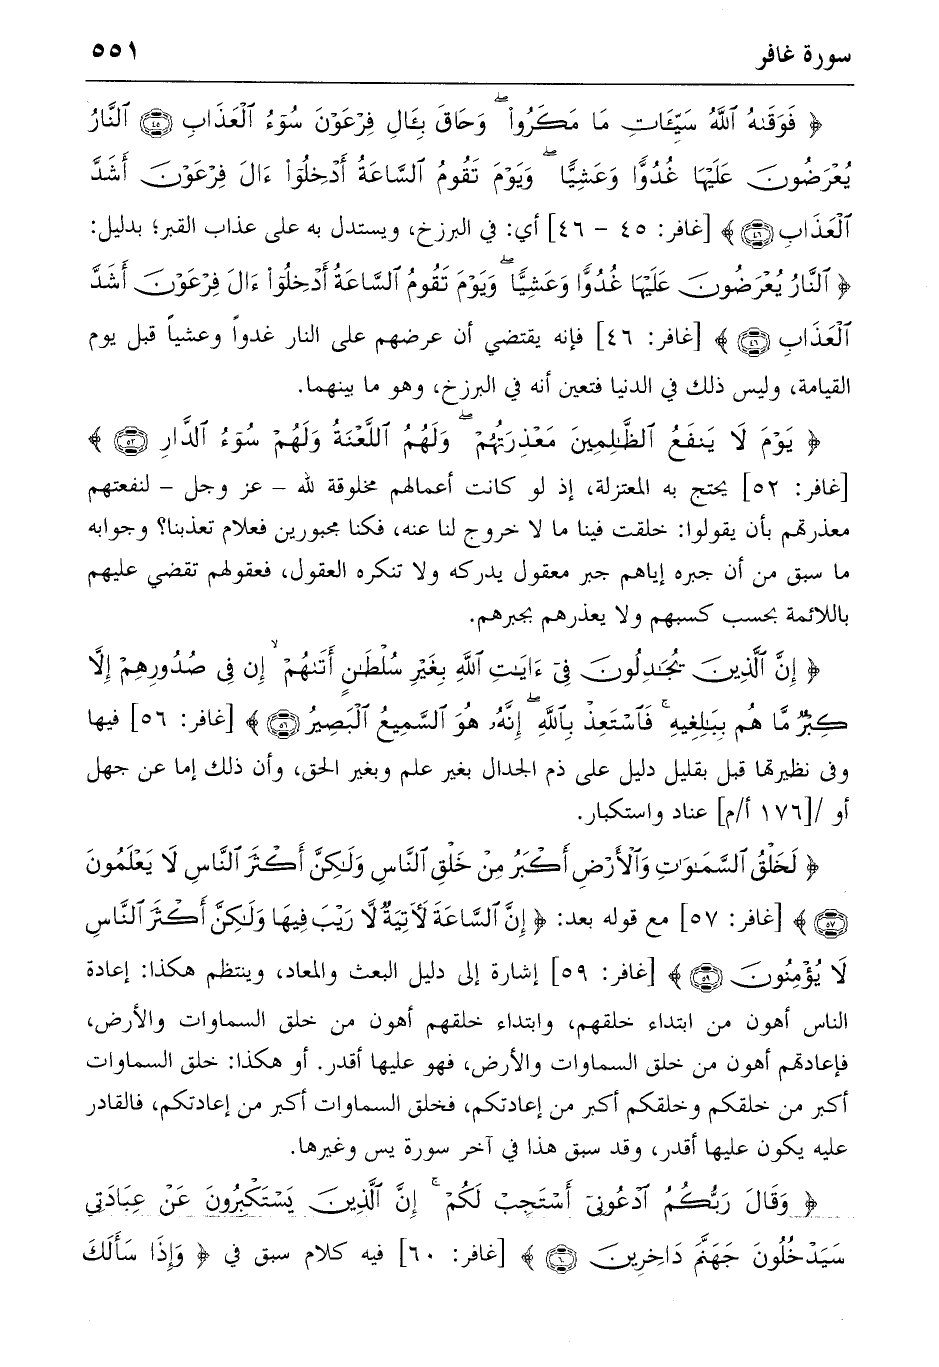 سورة غافر ٥٥١
﴿ فَوَقَىٰهُ ٱللَّهُ سَيِّـَٔاتِ مَا مَكَرُوا۟ ۖ وَحَاقَ بِـَٔالِ فِرْعَوْنَ سُوٓءُ ٱلْعَذَابِ ۝٤٥ ٱلنَّارُ
يُعْرَضُونَ عَلَيْهَا غُدُوًّا وَعَشِيًّا ۖ وَيَوْمَ تَقُومُ ٱلسَّاعَةُ أَدْخِلُوٓا۟ ءَالَ فِرْعَوْنَ أَشَدَّ
ٱلْعَذَابِ ۝٤٦ ﴾ [غافر: ٤٥ – ٤٦] أي: في البرزخ، ويستدل به على عذاب القبر؛ بدليل:
﴿ ٱلنَّارُ يُعْرَضُونَ عَلَيْهَا غُدُوًّا وَعَشِيًّا ۖ وَيَوْمَ تَقُومُ ٱلسَّاعَةُ أَدْخِلُوٓا۟ ءَالَ فِرْعَوْنَ أَشَدَّ
ٱلْعَذَابِ ۝٤٦ ﴾ [غافر: ٤٦] فإنه يقتضي أن عرضهم على النار غدواً وعشياً قبل يوم
القيامة، وليس ذلك في الدنيا فتعين أنه في البرزخ، وهو ما بينهما.
﴿ يَوْمَ لَا يَنفَعُ ٱلظَّـٰلِمِينَ مَعْذِرَتُهُمْ ۖ وَلَهُمُ ٱللَّعْنَةُ وَلَهُمْ سُوٓءُ ٱلدَّارِ ۝٥٢ ﴾
[غافر: ٥٢] يحتج به المعتزلة، إذ لو كانت أعمالهم مخلوقة لله – عز وجل – لنفعتهم
معذرتهم بأن يقولوا: خلقت فينا ما لا خروج لنا عنه، فكنا مجبورين فعلام تعذبنا؟ وجوابه
ما سبق من أن جبره إياهم جبر معقول يدركه ولا تنكره العقول، فعقولهم تقضي عليهم
باللائمة بحسب كسبهم ولا يعذرهم بجبرهم.
﴿ إِنَّ ٱلَّذِينَ يُجَـٰدِلُونَ فِىٓ ءَايَـٰتِ ٱللَّهِ بِغَيْرِ سُلْطَـٰنٍ أَتَىٰهُمْ ۙ إِن فِى صُدُورِهِمْ إِلَّا
كِبْرٌ مَّا هُم بِبَـٰلِغِيهِ ۚ فَٱسْتَعِذْ بِٱللَّهِ ۖ إِنَّهُۥ هُوَ ٱلسَّمِيعُ ٱلْبَصِيرُ ۝٥٦ ﴾ [غافر: ٥٦] فيها
وفى نظيرتها قبل بقليل دليل على ذم الجدال بغير علم وبغير الحق، وأن ذلك إما عن جهل
أو /[١٧٦ أ/م] عناد واستكبار.
﴿ لَخَلْقُ ٱلسَّمَـٰوَٰتِ وَٱلْأَرْضِ أَكْبَرُ مِنْ خَلْقِ ٱلنَّاسِ وَلَـٰكِنَّ أَكْثَرَ ٱلنَّاسِ لَا يَعْلَمُونَ
۝٥٧ ﴾ [غافر: ٥٧] مع قوله بعد: ﴿ إِنَّ ٱلسَّاعَةَ لَـَٔاتِيَةٌ لَّا رَيْبَ فِيهَا وَلَـٰكِنَّ أَكْثَرَ ٱلنَّاسِ
لَا يُؤْمِنُونَ ۝٥٩ ﴾ [غافر: ٥٩] إشارة إلى دليل البعث والمعاد، وينتظم هكذا: إعادة
الناس أهون من ابتداء خلقهم، وابتداء خلقهم أهون من خلق السماوات والأرض،
فإعادتهم أهون من خلق السماوات والأرض، فهو عليها أقدر. أو هكذا: خلق السماوات
أكبر من خلقكم وخلقكم أكبر من إعادتكم، فخلق السماوات أكبر من إعادتكم، فالقادر
عليه يكون عليها أقدر، وقد سبق هذا في آخر سورة يس وغيرها.
﴿ وَقَالَ رَبُّكُمُ ٱدْعُونِىٓ أَسْتَجِبْ لَكُمْ ۚ إِنَّ ٱلَّذِينَ يَسْتَكْبِرُونَ عَنْ عِبَادَتِى
سَيَدْخُلُونَ جَهَنَّمَ دَاخِرِينَ ۝٦٠ ﴾ [غافر: ٦٠] فيه كلام سبق في ﴿ وَإِذَا سَأَلَكَ